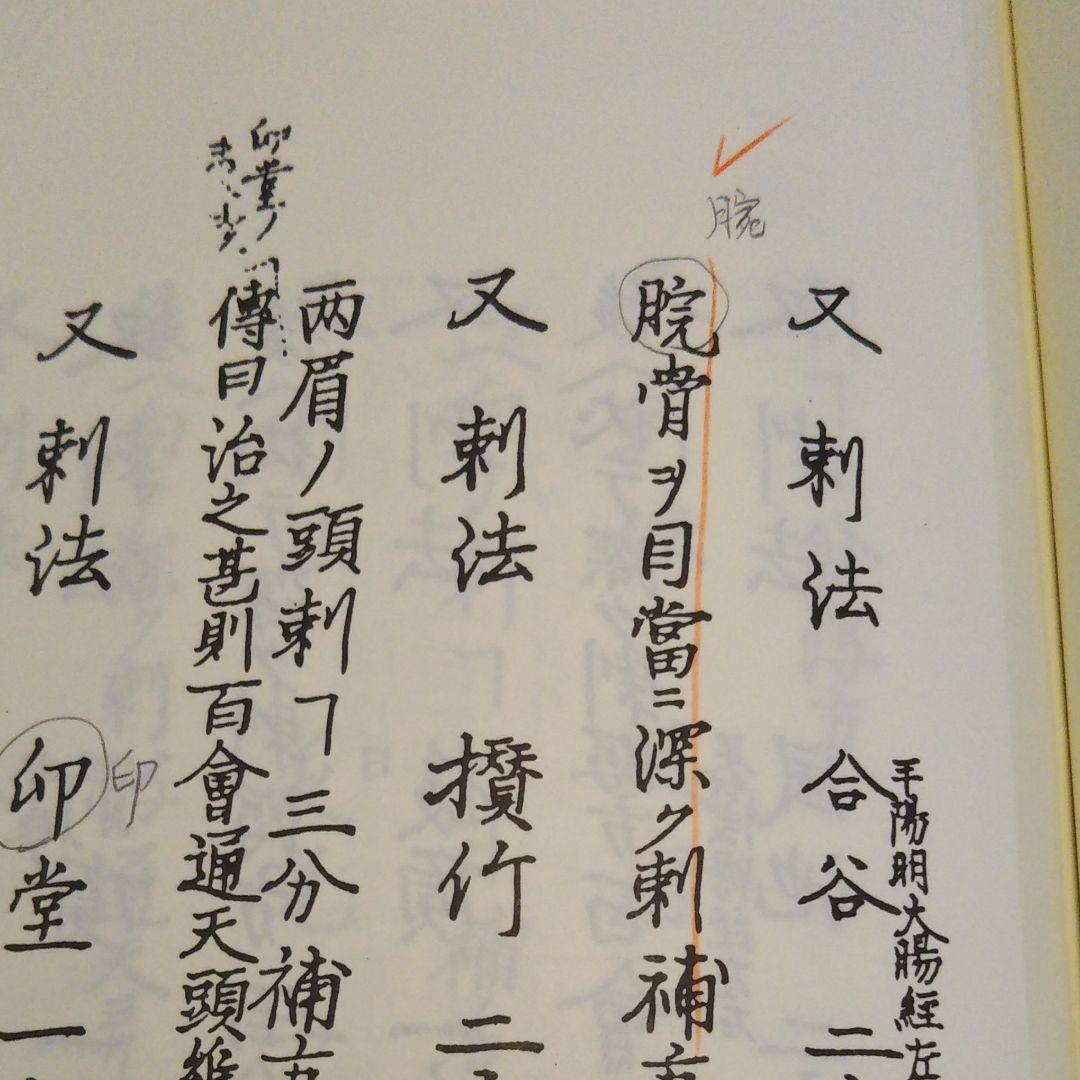 又刺法 合谷 二
手陽明大腸經左
腕
脘骨ヲ目當ニ深ク刺補
又刺法 攅竹 二
两眉ノ頭刺ヿ三分補
印堂ノ
傳曰治之甚則百會通天頭維
又刺法 卯堂 一
印